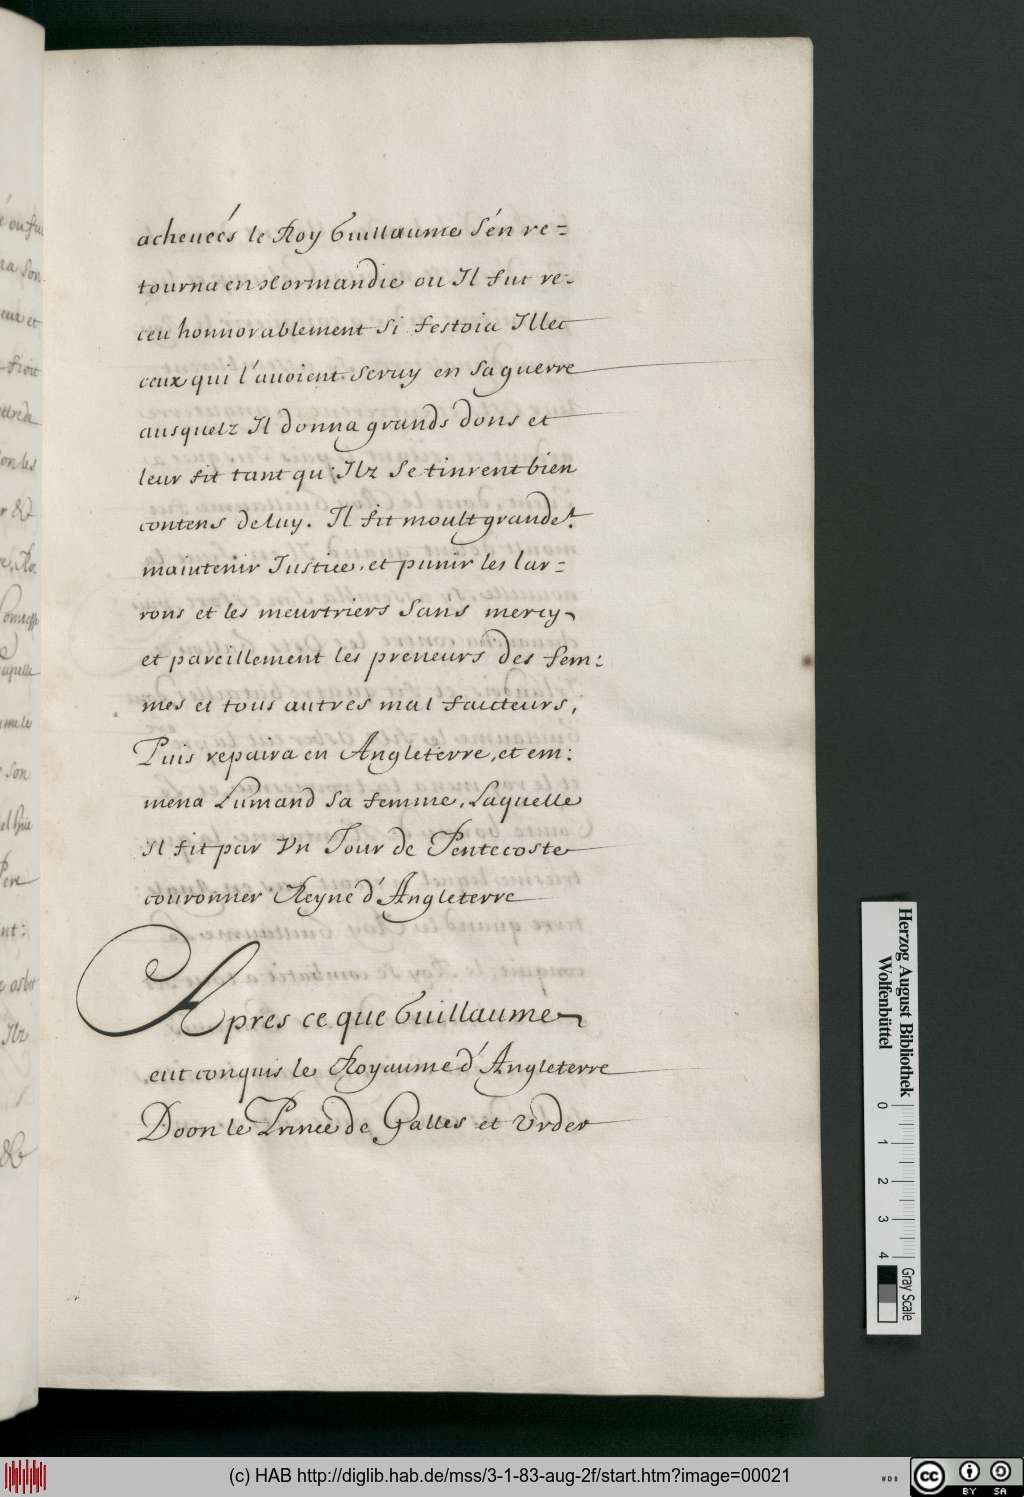 acheueés le Roy Guillaume s'én re-
tourna en Normandie ou Il fut re-
ceu honnorablement si festoia Illec
ceux qui l'auoient seruy en sa guerre
ausquelz Il donna grands dons et
leur fit tant qu'Ilz se tinrent bien
contens de luy. Il fit moult grande
maintenir Justice, et punir les lar-
rons et les meurtriers sans mercy
et pareillement les preneurs des fem-
mes et tous autres mal faicteurs,
Puis repaira en Angleterre, et em-
mena Lumand sa femme, Laquelle
Il fit par Vn Jour de Pentecoste
couronner Reyne d'Angleterre
Apres ce que Guillaume
eut conquis le Royaume d'Angleterre
Doon le Prince de Galles et Vrder
é ou fut
na son
eux et
son
Ilz
Herzog August Bibliothek
Wolfenbüttel
0 1 2 3 4
Gray Scale
(c) HAB http://diglib.hab.de/mss/3-1-83-aug-2f/start.htm?image=00021
WDB
cc BY SA